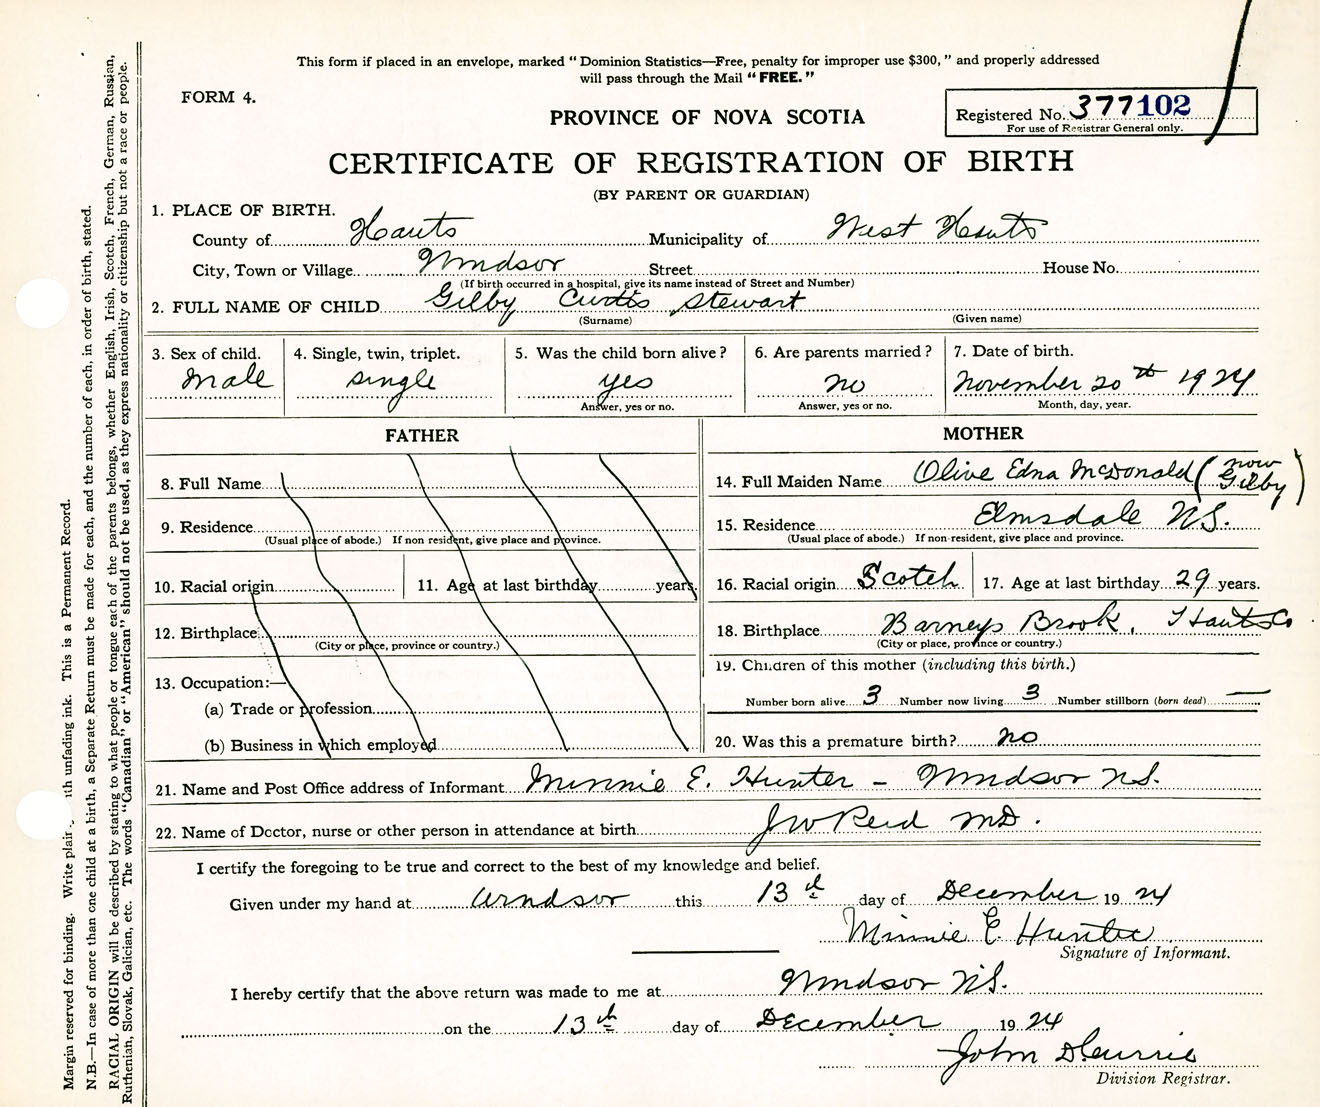 This form if placed in an envelope, marked “Dominion Statistics—Free, penalty for improper use $300,” and properly addressed
will pass through the Mail “FREE.”
FORM 4.
PROVINCE OF NOVA SCOTIA
Registered No. 377102
For use of Registrar General only.
CERTIFICATE OF REGISTRATION OF BIRTH
(BY PARENT OR GUARDIAN)
1. PLACE OF BIRTH.
County of Hants Municipality of West Hants
City, Town or Village Windsor Street House No.
(If birth occurred in a hospital, give its name instead of Street and Number)
2. FULL NAME OF CHILD Gilby Curtis Stewart
(Surname) (Given name)
3. Sex of child. 4. Single, twin, triplet. 5. Was the child born alive? 6. Are parents married? 7. Date of birth.
Male single yes no November 20th 1924
Answer, yes or no. Answer, yes or no. Month, day, year.
FATHER
8. Full Name
9. Residence
(Usual place of abode.) If non resident, give place and province.
10. Racial origin 11. Age at last birthday years.
12. Birthplace
(City or place, province or country.)
13. Occupation:—
(a) Trade or profession
(b) Business in which employed
MOTHER
14. Full Maiden Name Olive Edna McDonald (now Gilby)
15. Residence Elmsdale N.S.
(Usual place of abode.) If non-resident, give place and province.
16. Racial origin Scotch 17. Age at last birthday 29 years.
18. Birthplace Barneys Brook, Hants Co
(City or place, province or country.)
19. Children of this mother (including this birth.)
Number born alive 3 Number now living 3 Number stillborn (born dead) —
20. Was this a premature birth? no
21. Name and Post Office address of Informant Minnie E. Hunter - Windsor N.S.
22. Name of Doctor, nurse or other person in attendance at birth J W Reid MD.
I certify the foregoing to be true and correct to the best of my knowledge and belief.
Given under my hand at Windsor this 13th day of December 1924
Minnie E. Hunter
Signature of Informant.
I hereby certify that the above return was made to me at Windsor N.S.
on the 13th day of December 1924
John D Currie
Division Registrar.
Margin reserved for binding. Write plain with unfading ink. This is a Permanent Record.
N.B.—In case of more than one child at a birth, a Separate Return must be made for each, and the number of each, in order of birth, stated.
RACIAL ORIGIN will be described by stating to what people or tongue each of the parents belongs, whether English, Irish, Scotch, French, German, Russian,
Ruthenian, Slovak, Galician, etc. The words “Canadian” or “American” should not be used, as they express nationality or citizenship but not a race or people.